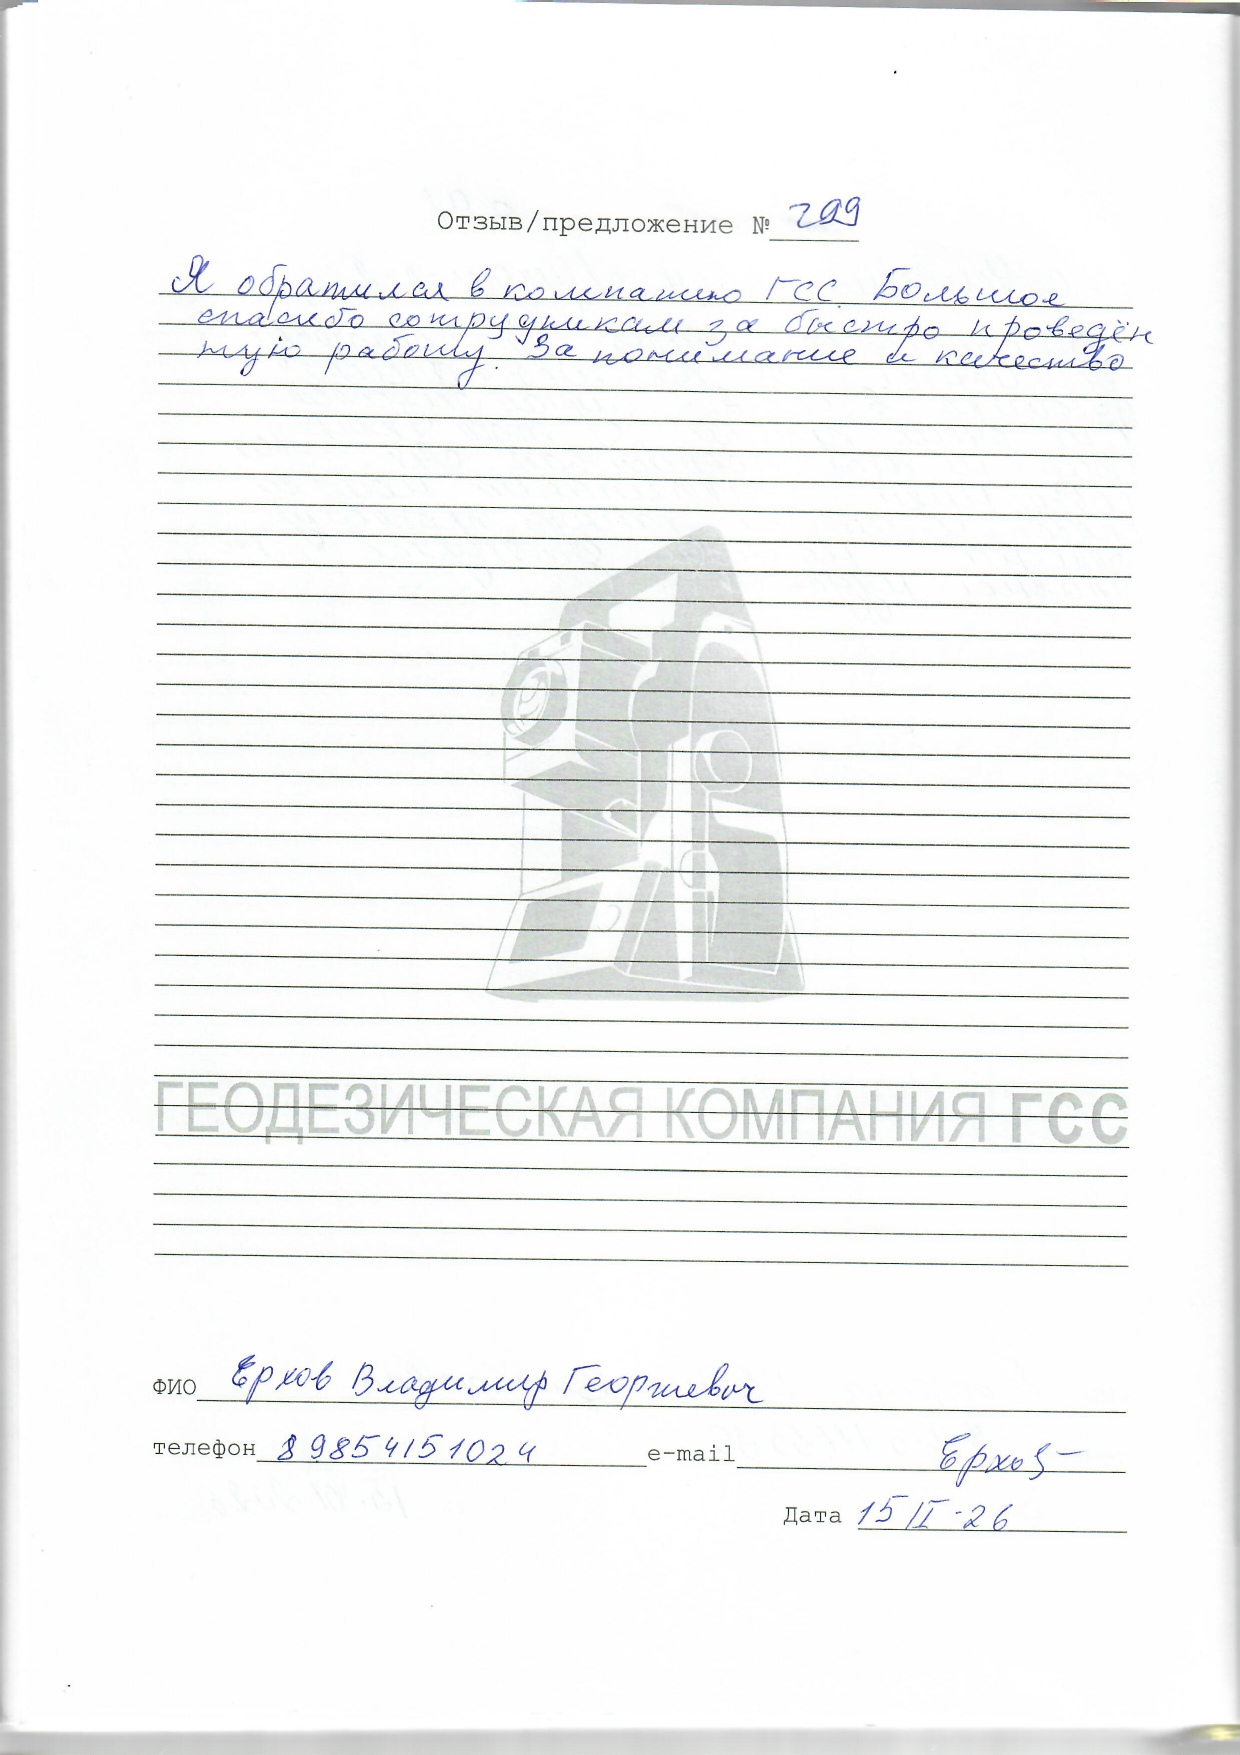 Отзыв/предложение № 299
Я обратился в компанию ГСС. Большое
спасибо сотрудникам за быстро проведён
ную работу. За понимание и качество
ГЕОДЕЗИЧЕСКАЯ КОМПАНИЯ ГСС
ФИО Ерхов Владимир Георгиевич
телефон 89854151024 e-mail Ерхов
Дата 15/II-26